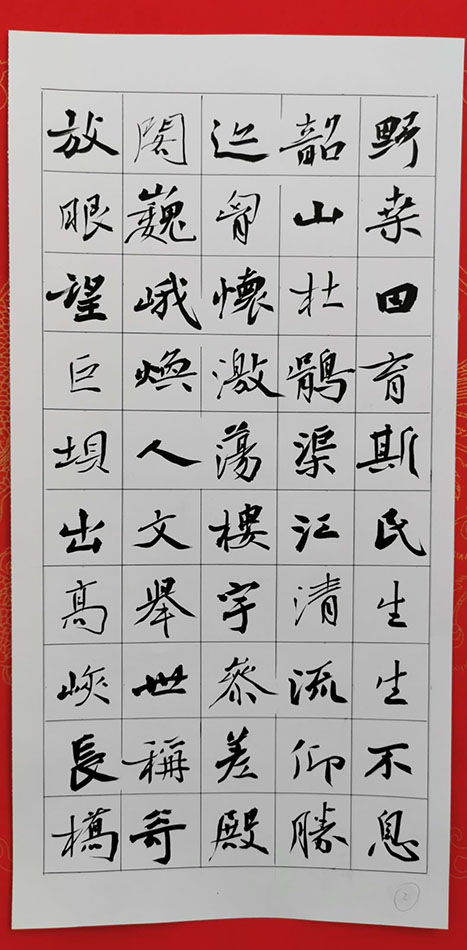 野桑田育斯民生生不息
韶山杜鵑渠江清流仰勝
迹胷懷激蕩樓宇參差殿
閣巍峨煥人文舉世稱奇
放眼望巨垻出高峽長橋